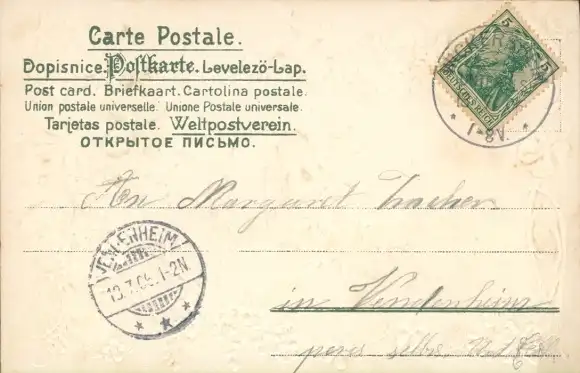 Carte Postale.
Dopisnice. Postkarte. Levelező-Lap.
Post card. Briefkaart. Cartolina postale.
Union postale universelle. Unione Postale universale.
Tarjetas postale. Weltpostverein.
ОТКРЫТОЕ ПИСЬМО.
5 5
DEUTSCHES REICH
1-8V.
An Margaret
in Vendenheim
1-2N